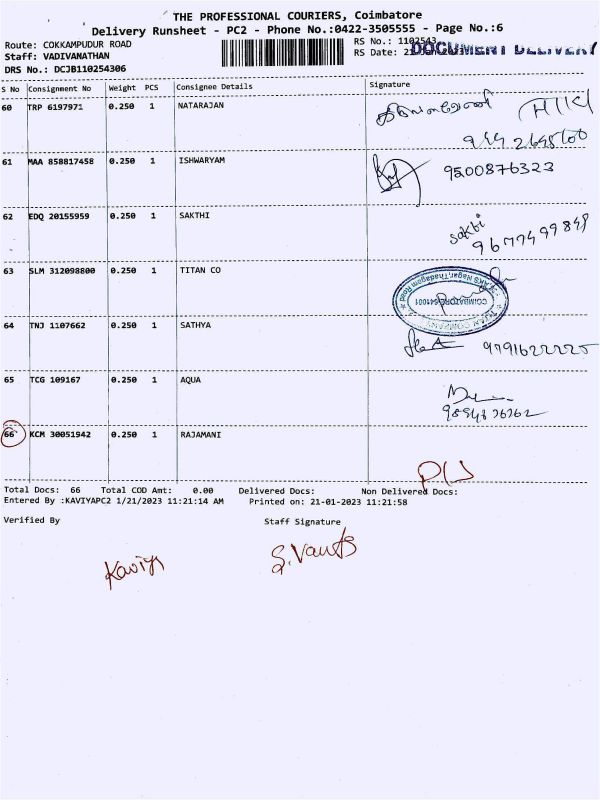 THE PROFESSIONAL COURIERS, Coimbatore
Delivery Runsheet - PC2 - Phone No.:0422-3505555 - Page No.:6
Route: COKKAMPUDUR ROAD
Staff: VADIVANATHAN
DRS No.: DCJB110254306
RS No.: 1102543
RS Date:
DOCUMENT DELIVERY
S No Consignment No Weight PCS Consignee Details Signature
60 TRP 6197971 0.250 1 NATARAJAN
61 MAA 858817458 0.250 1 ISHWARYAM 9500876323
62 EDQ 20155959 0.250 1 SAKTHI sakthi
9677499848
63 SLM 312098800 0.250 1 TITAN CO
COIMBATORE-641001
64 TNJ 1107662 0.250 1 SATHYA 9791622225
65 TCG 109167 0.250 1 AQUA
66 KCM 30051942 0.250 1 RAJAMANI
Total Docs: 66 Total COD Amt: 0.00 Delivered Docs: Non Delivered Docs:
Entered By :KAVIYAPC2 1/21/2023 11:21:14 AM Printed on: 21-01-2023 11:21:58
Verified By Staff Signature
Kaviya